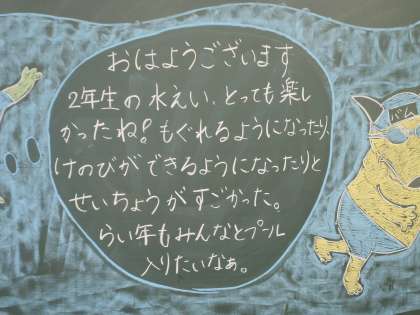 おはようございます
2年生の水えい、とっても楽し
かったね!もぐれるようになったり、
けのびができるようになったりと
せいちょうがすごかった。
らい年もみんなとプール
入りたいなぁ。
バム